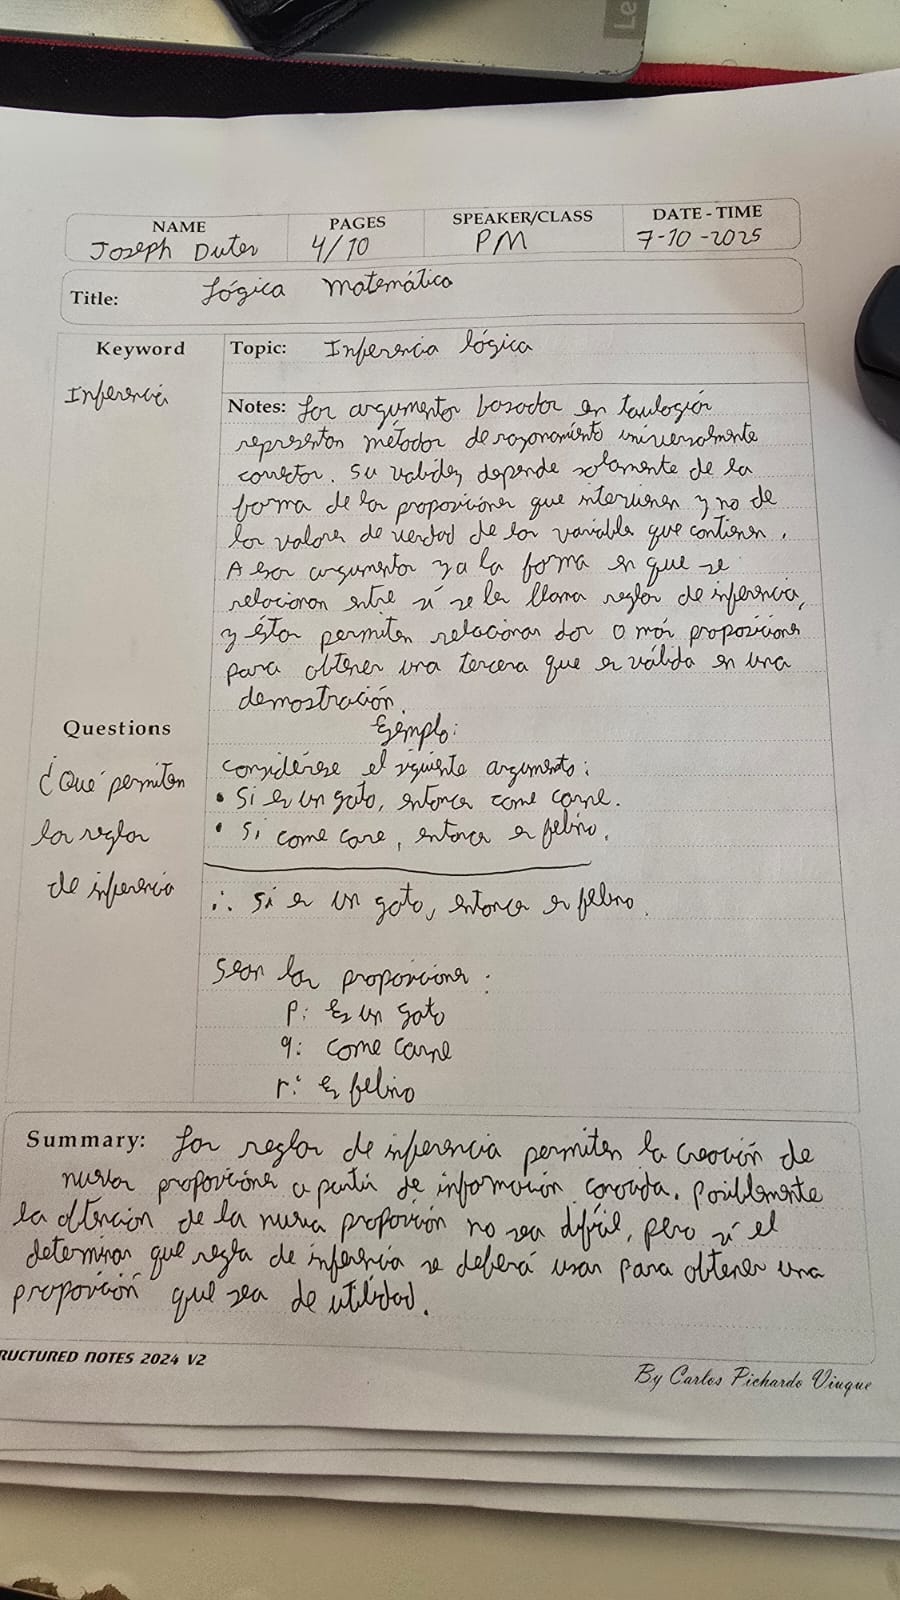 Le
NAME PAGES SPEAKER/CLASS DATE - TIME
Joseph Duter 4/10 PM 7-10-2025
Title: Lógica Matemática
Keyword Topic: Inferencia lógica
Inferencia
Notes: Los argumentos basados en tautologías
representan métodos de razonamiento universalmente
correctos. Su validez depende solamente de la
forma de las proposiciones que intervienen y no de
los valores de verdad de las variables que contienen.
A esos argumentos y a la forma en que se
relacionan entre sí se les llama reglas de inferencia,
y éstas permiten relacionar dos o más proposiciones
para obtener una tercera que es válida en una
demostración.
Questions Ejemplo:
¿Qué permiten
las reglas
de inferencia
considérese el siguiente argumento:
• Si es un gato, entonces come carne.
• Si come care, entonces es felino.
∴ Si es un gato, entonces es felino.
Sean las proposiciones:
p: Es un gato
q: come carne
r: Es felino
Summary: Las reglas de inferencia permiten la creación de
nuevas proposiciones a partir de información conocida. Posiblemente
la obtención de la nueva proposición no sea difícil, pero sí el
determinar que regla de inferencia se deberá usar para obtener una
proposición que sea de utilidad.
RUCTURED NOTES 2024 V2
By Carlos Pichardo Viuque